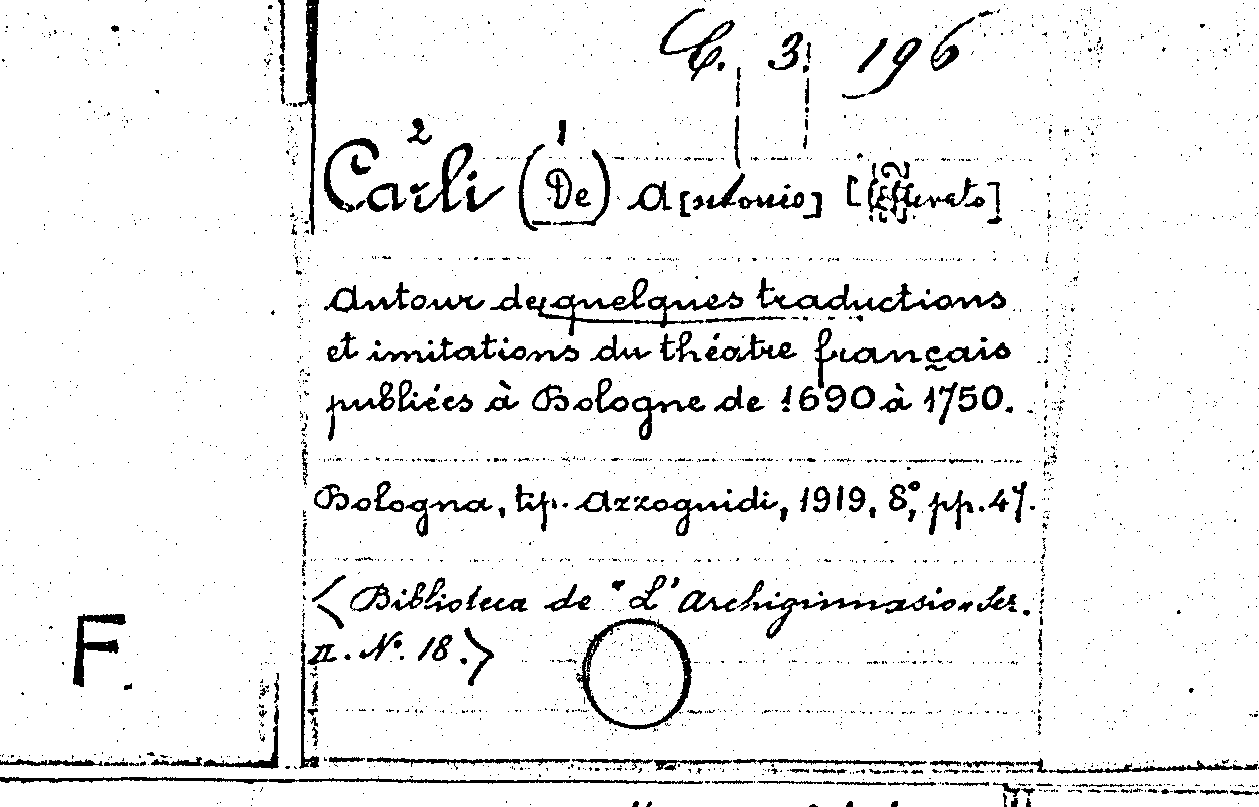 C. 3. 196
2 1
Carli (De) A[ntonio]
Autour de quelques traductions
et imitations du théatre français
publiées à Bologne de 1690 à 1750.
Bologna, tip. Azzoguidi, 1919, 8°, pp. 47.
<Biblioteca de "L'Archiginnasio" Ser.
II. N°. 18.>
F.